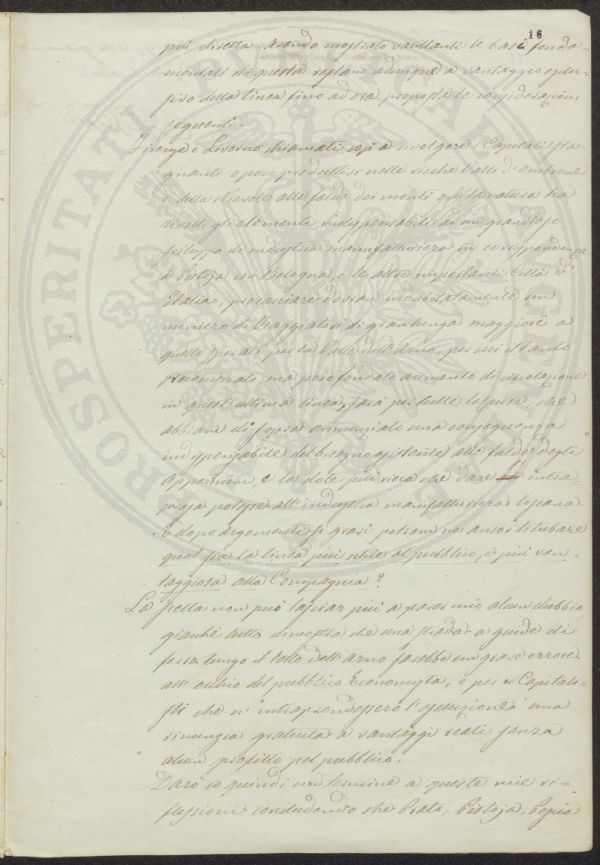 16
più diretta. Avendo mostrato vacillanti le basi fonda-
mentali di questa restano adunque a vantaggio esclu-
sivo della linea fino ad ora proposta le considerazioni
seguenti.
Firenze e Livorno chiamate così a rivolgere i Capitali sta-
gnanti opere produttive nelle ricche Valli d'Ombrone
e della Nievole alle falde dei monti ove la natura ha
riuniti gli elementi indispensabili ad un grandioso
sviluppo di industria manufatturiera in corrispondenza
a Pistoja con Bologna, e le altre importanti Città d'
Italia, procacciare dovran indubitatamente un
numero di Viaggiatori di gran lunga maggiore a
quello per la Valle dell'Arno, per cui stando
secondario ma però fondato aumento di circolazione
in quest'ultima linea, sarà per tutte le guise, che
abbiam di sopra annunziato una conseguenza
indispensabile del bisogno esistente alle falde degli
Appennini e la dote più ricca che dare intra-
presa potesse all'industria manufatturiera toscana.
E dopo argomenti sì gravi potremo noi ancor titubare
qual sia la linea più utile al pubblico, e più van-
taggiosa alla Compagnia?
La scelta non può lasciar più a parer mio alcun dubbio,
giacchè tutto dimostra che una strada a guide di
ferro lungo il letto dell'Arno sarebbe un grave errore
all'occhio del pubblico Economista, e per i Capitali-
sti che n'intraprendessero l'esecuzione una
rinunzia gratuita a vantaggi reali senza
alcun profitto pel pubblico.
Darò io quindi un termine a queste mie ri-
flessioni concludendo che Prato, Pistoja, Pescia